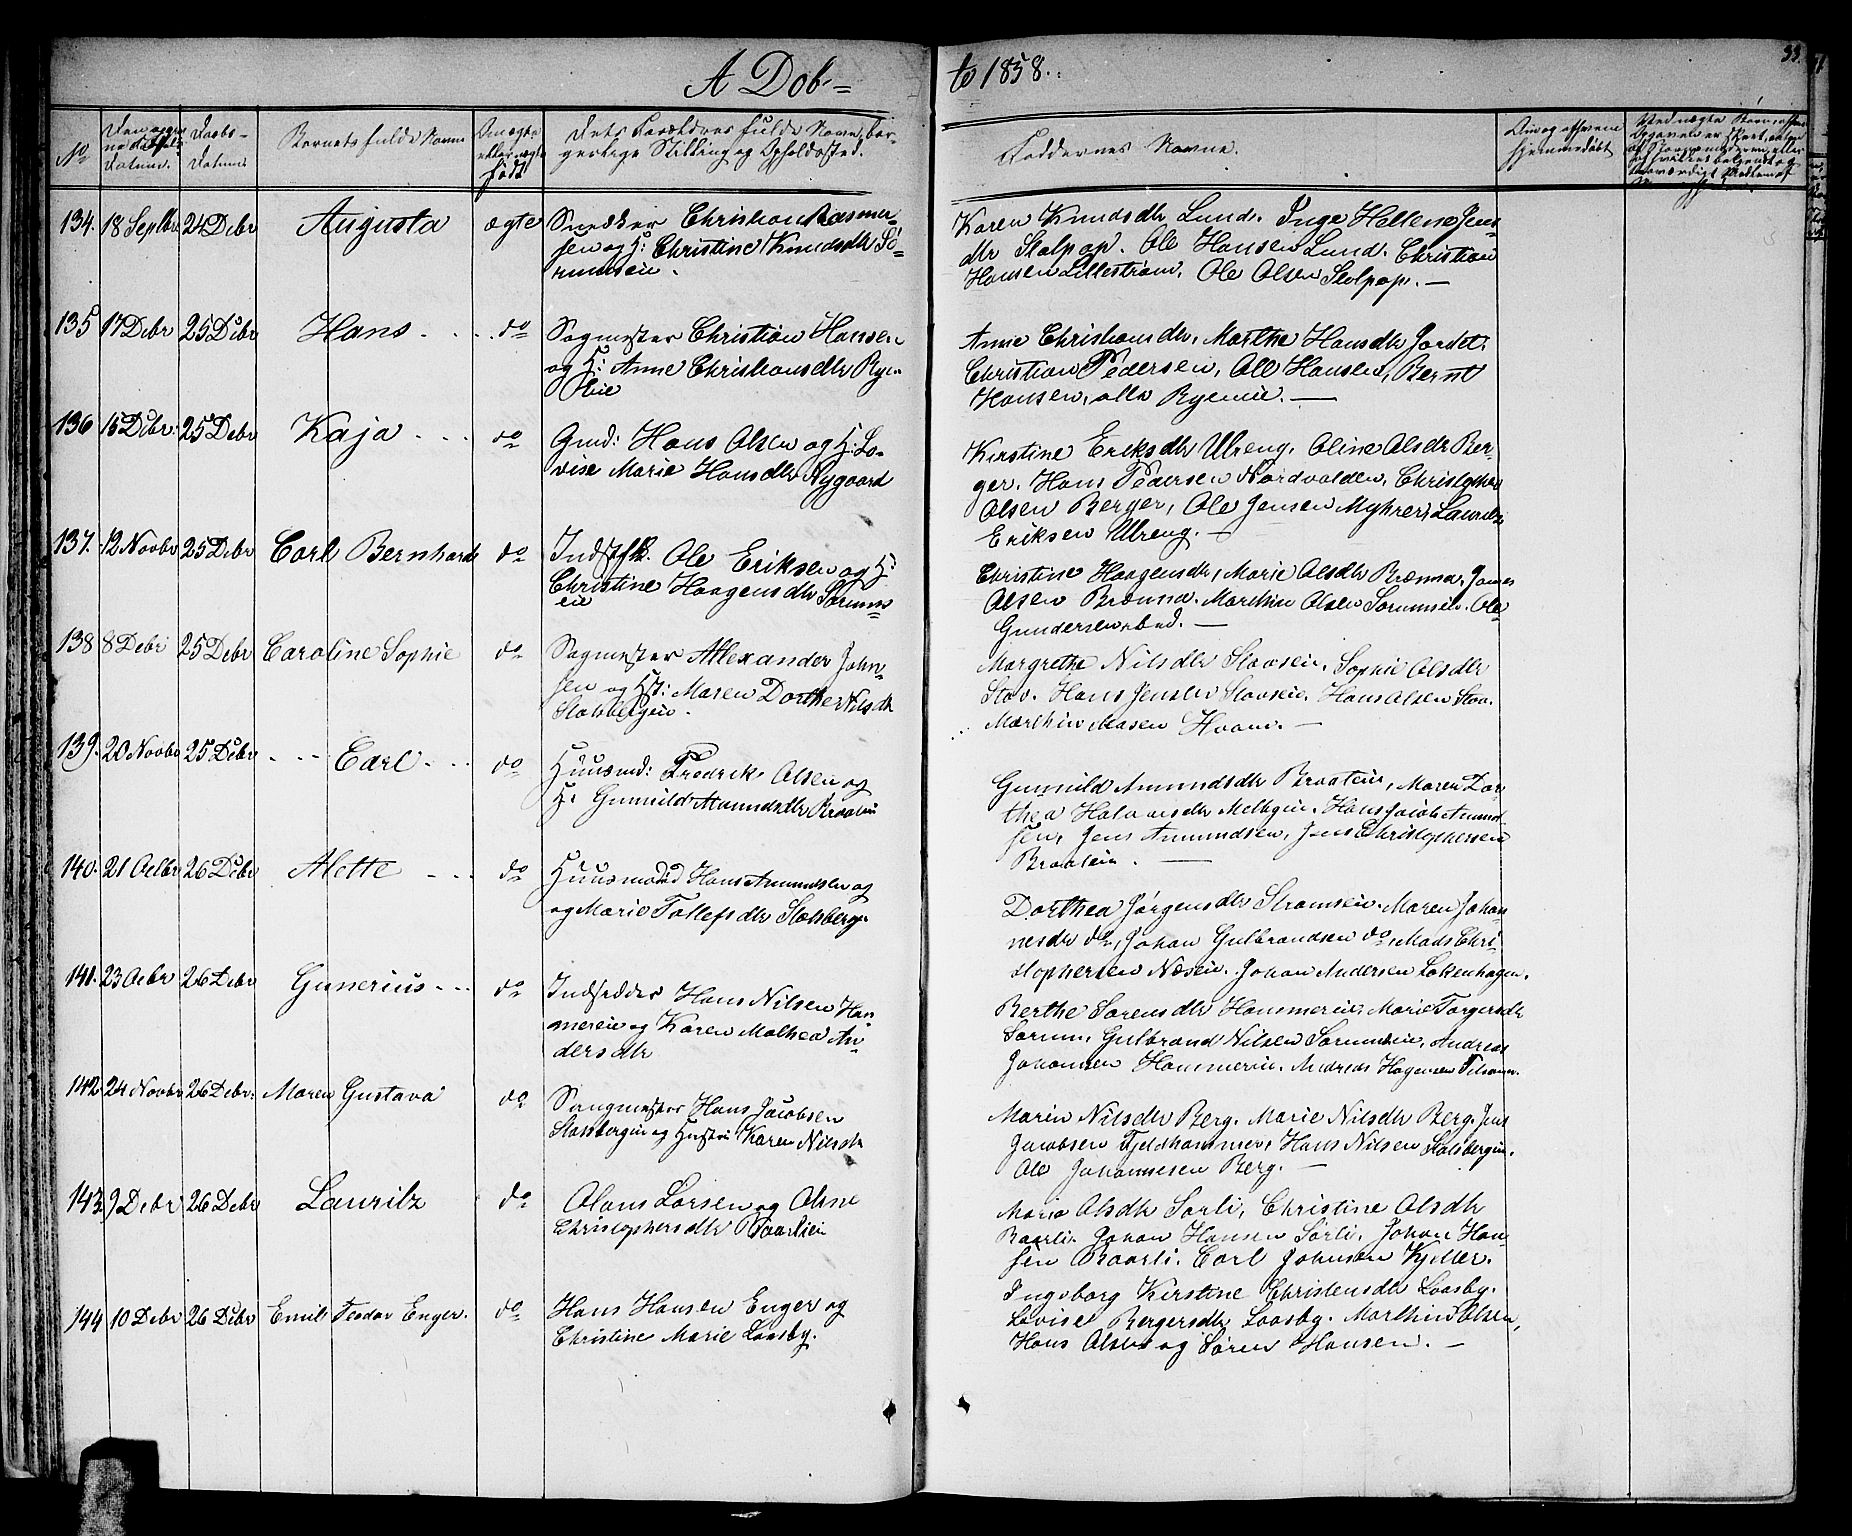 A Dob=
te 1858.
33
No
Datum.
Daabs-
Datum
Barnets fulde Navn
født
Dets Forældres fulde Navn, bor-
gerlige Stilling og Opholdssted.
Faddernes Navne.
hjemmedøbt
134. 18 Septbr 24 Debr Augusta ægte
Snedker Christian Rasmus-
sen og H: Christine Knudsdtr Sø-
rumseie.
Karen Knudsdtr Lund. Inge Hellene Jens
dtr Stolpop. Ole Hansen Lund. Christian
Hansen Lillestrøm. Ole Olsen Stolpop. —
135 17 Debr 25 Debr Hans do
Sagmester Christian Hansen
og H: Anne Christiansdtr Rye-
eie
Anne Christiansdtr, Marthe Hansdtr Jordet.
Christian Pedersen, Ole Hansen, Bernt
Hansen, alle Ryeeie. —
136 15 Debr. 25 Debr Kaja do
Gmd: Hans Olsen og H: Lo-
vise Marie Hansdtr Nygaard
Kirstine Eriksdtr Ulreng. Oline Olsdtr Ber-
ger. Hans Pedersen Nordvolden, Christopher
Olsen Berger, Ole Jensen Myhrer, Lauritz
Eriksen Ulreng. —
137. 12 Novbr 25 Debr Carl Bernhard do
Ole Eriksen og H:
Christine Haagensdtr Sørums
eie
Christine Haagensdtr, Marie Olsdtr Brænna. James
Olsen Brænna. Marthin Olsen Sørumseie. Ole
Gundersen ibid. —
138 8 Debr 25 Debr Caroline Sophie do
Sagmester Allexander John
sen og H: Maren Dorthe Nilsdtr
Stalsbergeie.
Margrethe Nilsdtr Stavseie. Sophie Olsdtr
Stav. Hans Jensen Stavseie. Hans Olsen Stav.
Marthin Masen Hvam. —
139. 20 Novbr 25 Debr Carl do
Huusmd: Fredrik Olsen og
H: Gunnild Amundsdtr Braateie
Gunnild Amundsdtr Braateie, Maren Dor-
thea Halvorsdtr Melbyeie. Hans Jacob Amund
sen, Jens Amundsen, Jens Christophersen
Braateie. —
140. 21 Octbr 26 Debr Alette do
Huusmand Hans Amundsen og
og Marie Tollefsdtr Stalsberg.
Dorthea Jørgensdtr Strømseie. Maren Johan
nesdtr do, Johan Gulbrandsen do, Mads Chri-
stophersen Næseie. Johan Andersen Løkenhagen.
141. 23 Octbr 26 Debr Gunerius do
Indsidder Hans Nilsen Ham-
mereie og Karen Mathea An-
dersdtr
Berthe Sørensdtr Hammereie, Marie Torgersdtr
Sørum. Gulbrand Nilsen Sørumseie, Andreas
Johansen Hammereie. Andreas Hagensen
142 24 Novbr 26 Debr. Maren Gustava do
Saugmester Hans Jacobsen
Stalsbergeie og Hustru Karen Nilsdtr
Maren Nilsdtr Berg. Marie Nilsdtr Berg. Jens
Jacobsen Fjeldhammer, Hans Nilsen Stalsbergeie.
Ole Johannesen Berg. —
143. 9 Debr 26 Debr Lauritz do
Olaus Larsen og Oline
Christophersdtr
Maria Olsdtr Sørli, Christine Olsdtr
Baarli. Johan Hansen Sørli, Johan Han-
sen Baarli. Carl Johnsen Kjeller.
144 10 Debr 26 Debr Emil Teodor Enger. do
Hans Hansen Enger og
Christine Marie Laasby.
Ingeborg Kirstine Christensdtr Laasby.
Lovise Bergersdtr Laasby. Marthin Olsen,
Hans Olsen og Søren Hansen. —